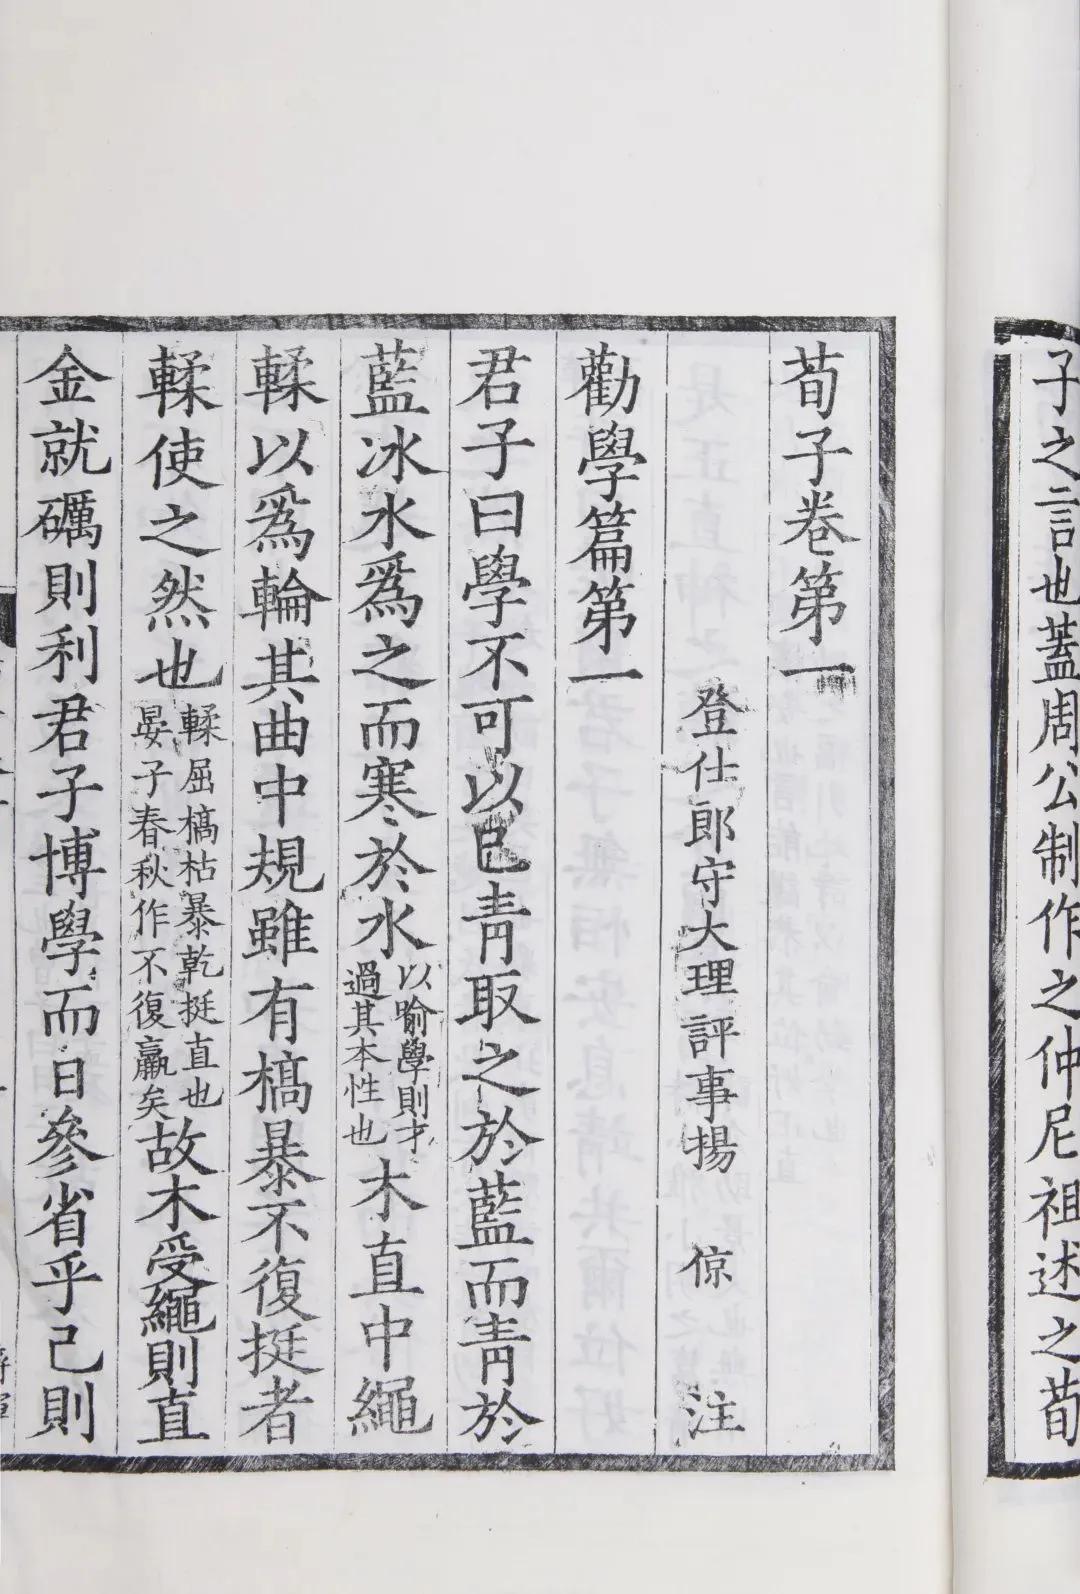 子之言也蓋周公制作之仲尼祖述之荀
荀子卷第一
登仕郎守大理評事揚 倞 注
勸學篇第一
君子曰學不可以已青取之於藍而青於
藍冰水爲之而寒於水以喻學則才過其本性也木直中繩
輮以爲輪其曲中規雖有槁暴不復挺者
輮使之然也輮屈槁枯暴乾挺直也晏子春秋作不復羸矣故木受繩則直
金就礪則利君子博學而日參省乎己則